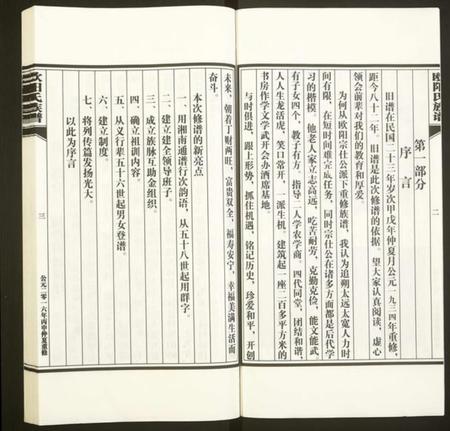 欧阳氏族谱
二
第一部分
序言
旧谱在民国二十三年岁次甲戌年仲夏月公元一九三四年重修，
距今八十二年，旧谱是此次修谱的依据。望大家认真阅读，虚心
领会前辈对我们的教育和厚爱。
为何从欧阳宗仕公派下重修族谱，我认为追朔太远太宽人力时
间有限，在短时间难完成任务，同时宗仕公在诸多方面都是后代学
习的楷模，他老人家立志高远，吃苦耐劳，克勤克俭，能文能武，
有子女四个，教子有方，指导二人学农学商。四代同堂，团结和谐，
人人生龙活虎，笑口常开，一派生机。建筑起一座二百多平方米的
书房作学文学武开会办酒席基地。
与时俱进，跟上形势，抓住机遇，铭记历史，珍爱和平，开创
未来，朝着丁财两旺，富贵双全，福寿安宁，幸福美满生活而
奋斗。
本次修谱的新亮点
一、用湘南通谱行次韵语，从五十八世起用群字。
二、建立建全领导班子。
三、成立族脉互助金组织。
四、确立祖训内容。
五、从义行辈五十六世起男女登谱。
六、建立制度。
七、将列传篇发扬光大。
以此为序言
欧阳氏族谱
三
公元二零一六年丙申仲夏重修